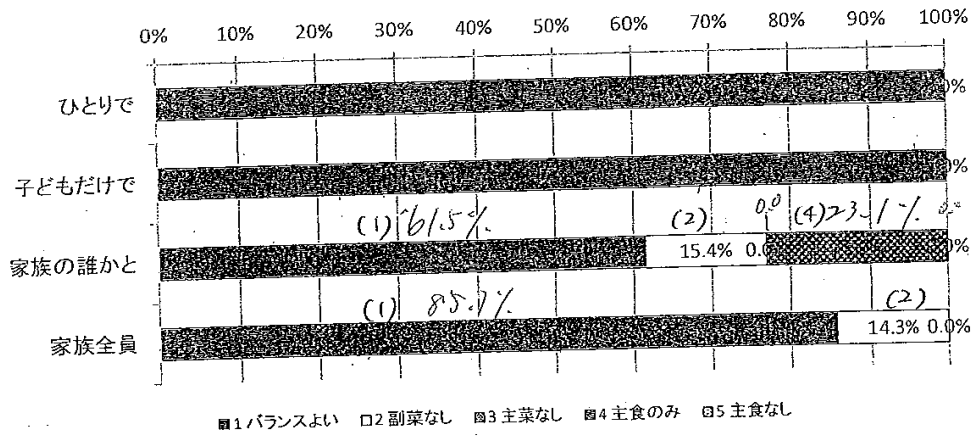 0% 10% 20% 30% 40% 50% 60% 70% 80% 90% 100%
ひとりで 0%
子どもだけで 0%
(1) 61.5% (2) 0.0 (4) 23.1%
家族の誰かと 15.4% 0.0 0%
(1) 85.7% (2)
家族全員 14.3% 0.0%
1 バランスよい 2 副菜なし 3 主菜なし 4 主食のみ 5 主食なし